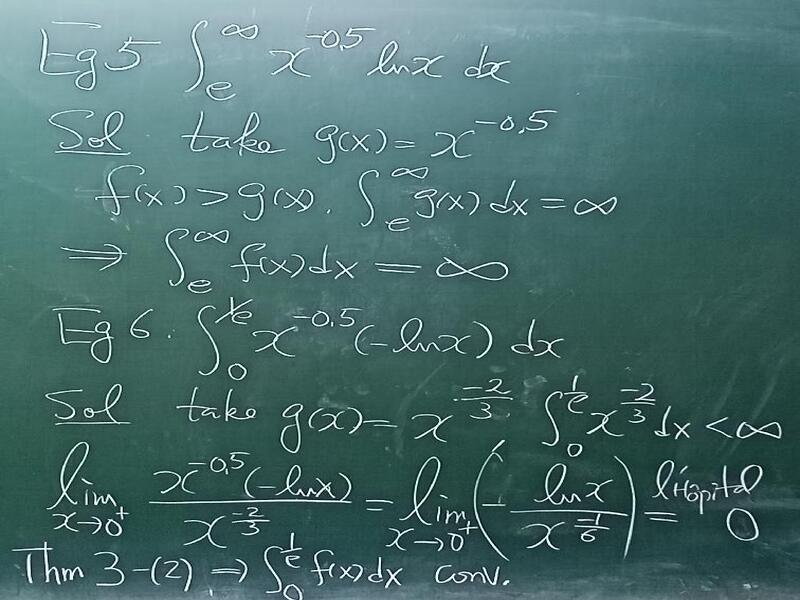 Eg 5 ∫_e^∞ x^{-0.5} lnx dx
Sol take g(x) = x^{-0.5}
f(x) > g(x). ∫_e^∞ g(x) dx = ∞
⟹ ∫_e^∞ f(x) dx = ∞
Eg 6. ∫_0^{1/e} x^{-0.5} (-lnx) dx
Sol take g(x) = x^{-2/3} ∫_0^{1/e} x^{-2/3} dx < ∞
lim_{x→0^+} x^{-0.5}(-lnx) / x^{-2/3} = lim_{x→0^+} (- lnx / x^{-1/6}) =^{l'Hôpital} 0
Thm 3-(2) ⟹ ∫_0^{1/e} f(x) dx conv.